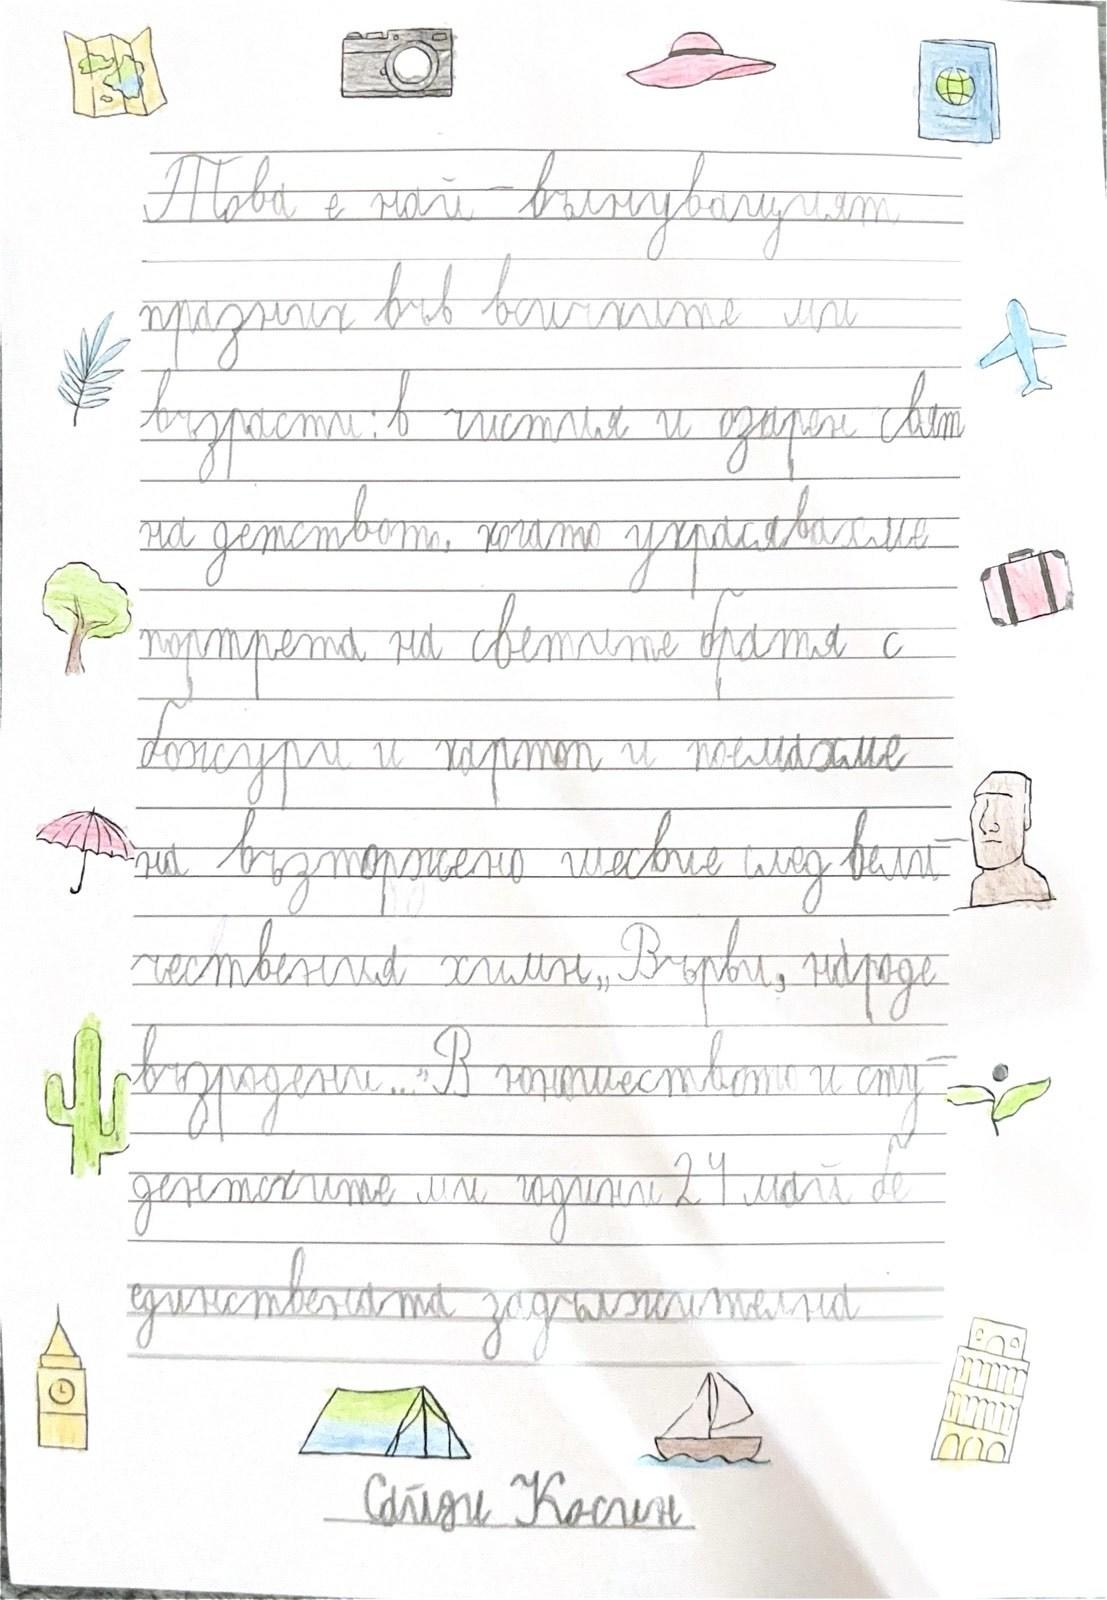 Това е най-вълнуващият
празник във всичките ми
възрасти: в чистия и озарен свят
на детството, когато украсявахме
портрета на светлите братя с
божури и картон и поемахме
на възторжено шествие след вели-
чествения химн „Върви, народе
възродени..." В юношеството и сту-
дентските ми години 24 май бе
единствената задължителна